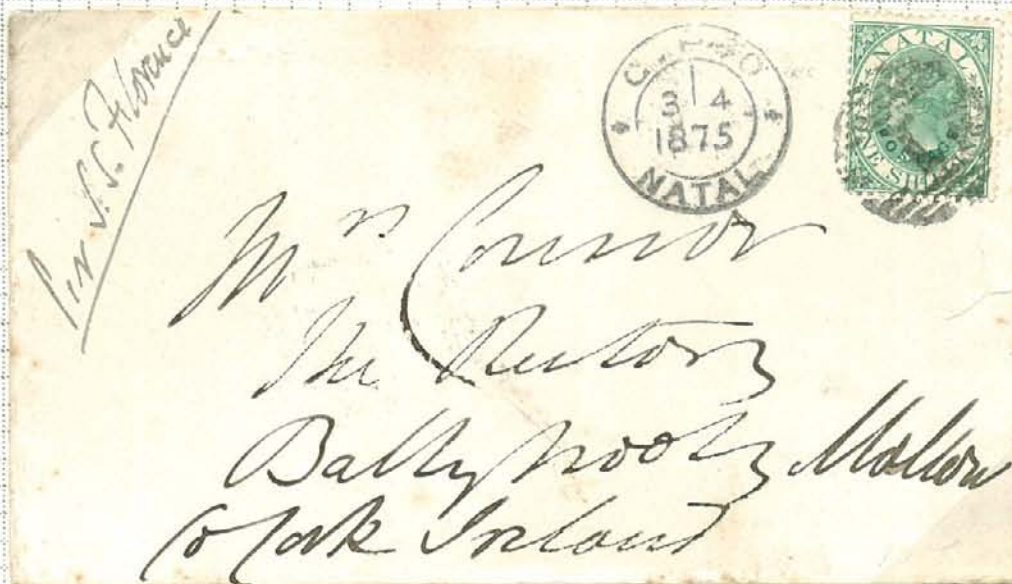 Per S.S. Florence
G.P.O
3 4
1875
NATAL
NATAL
POSTAGE
ONE SHILLING
Mrs Connor
The Rectory
Ballyhooly Mallow
Co Cork Ireland